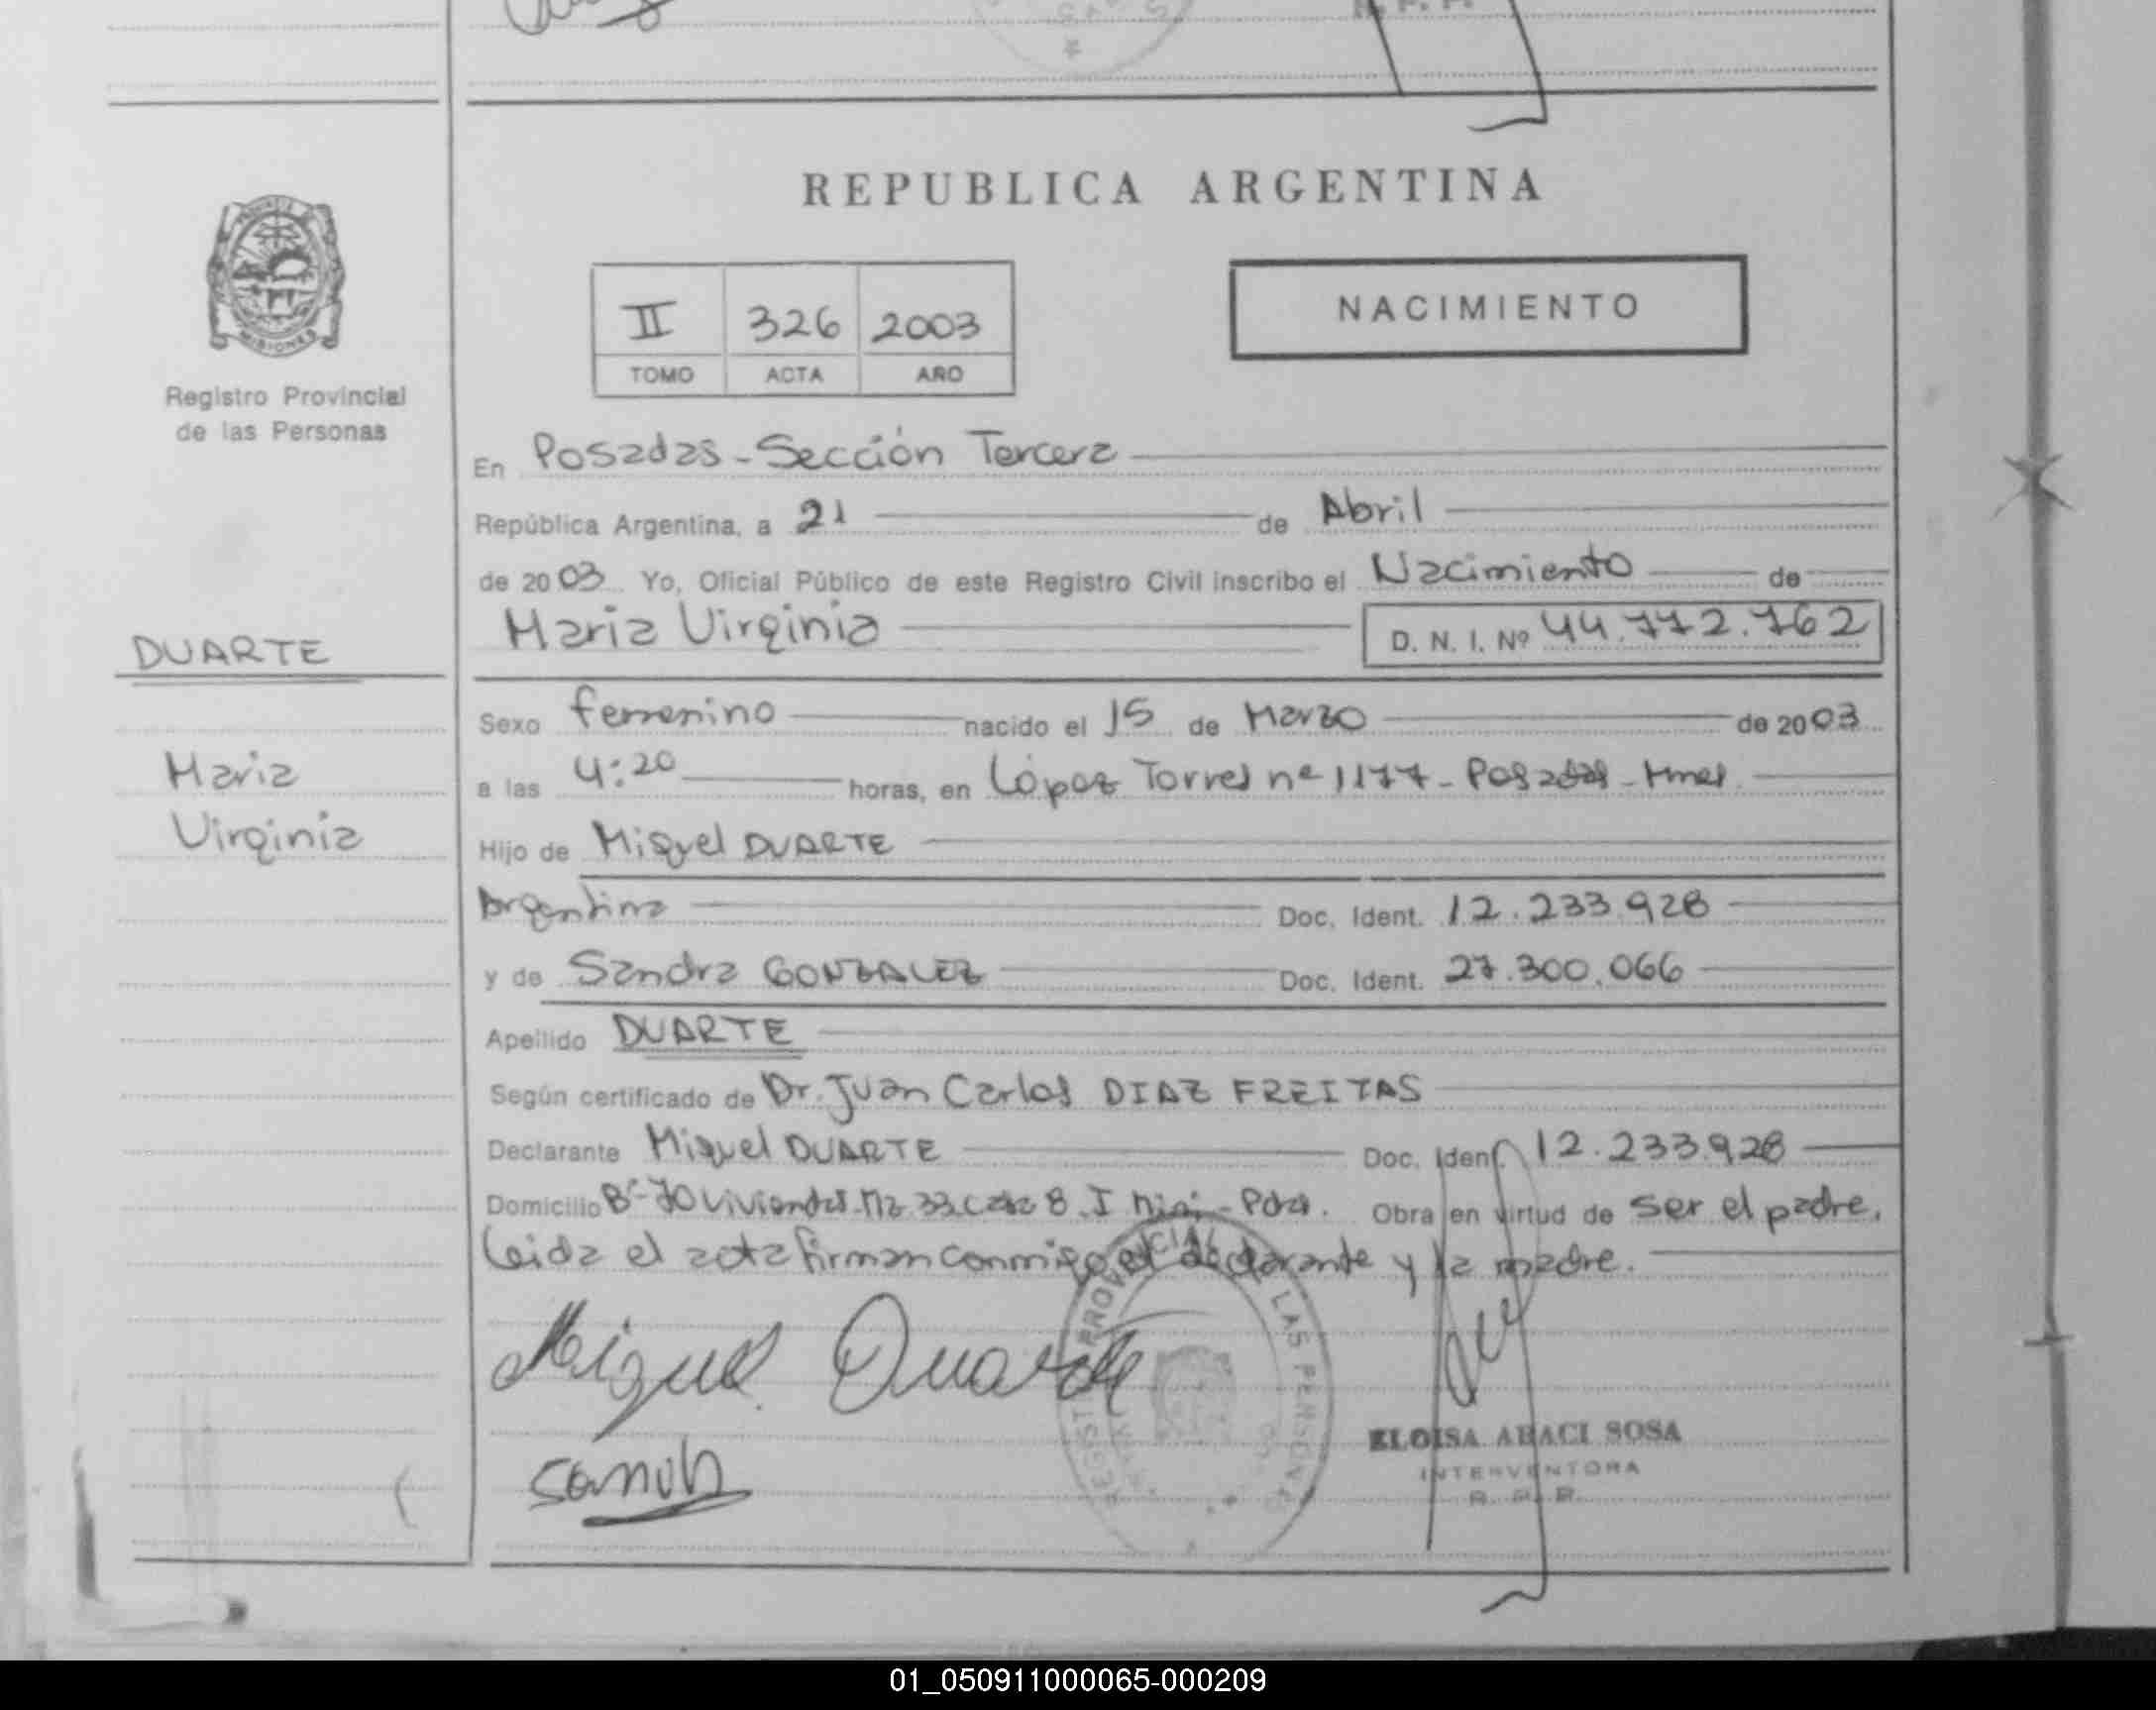 REPUBLICA ARGENTINA
PROVINCIA DE
MISIONES
Registro Provincial
de las Personas
II 326 2003
TOMO ACTA AÑO
NACIMIENTO
En Posadas - Sección Tercera
República Argentina, a 21 de Abril
de 2003 Yo, Oficial Público de este Registro Civil inscribo el Nacimiento de
Maria Virginia D. N. I. Nº 44.772.762
DUARTE
Sexo femenino nacido el 15 de Marzo de 2003
Maria
a las 4:20 horas, en López Torres nº 1177 - Posadas - Mnes.
Virginia
Hijo de Miguel DUARTE
Argentina Doc. Ident. 12.233.928
y de Sandra GONZALEZ Doc. Ident. 27.300.066
Apellido DUARTE
Según certificado de Dr. Juan Carlos DIAZ FREITAS
Declarante Miguel DUARTE Doc. Ident. 12.233.928
Domicilio Bº 70 Viviendas Mz 33 Casa 8. I - Pdas. Obra en virtud de ser el padre.
Leida el acta firman conmigo el declarante y la madre.
Miguel Duarte
REGISTRO PROVINCIAL LAS PERSONAS
ELOISA ABACI SOSA
INTERVENTORA
R. P. P.
01_050911000065-000209